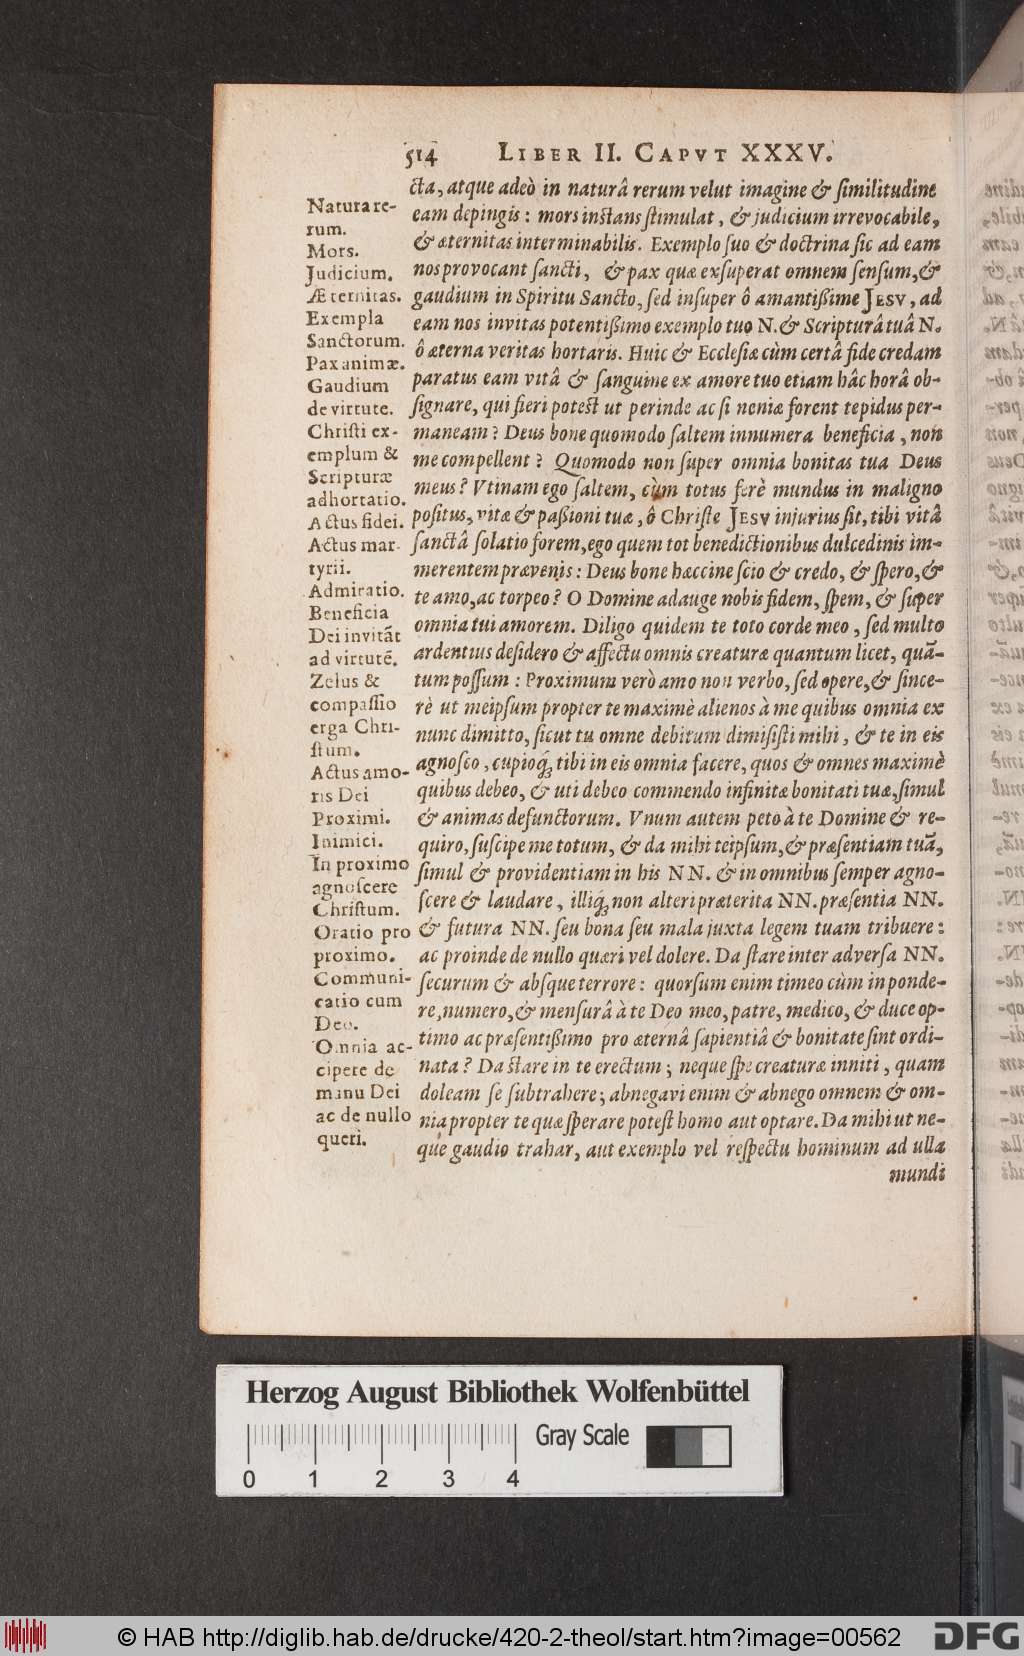 514 LIBER II. CAPVT XXXV.
cta, atque adeò in naturâ rerum velut imagine & similitudine
eam depingis: mors instans stimulat, & judicium irrevocabile,
& æternitas interminabilis. Exemplo suo & doctrina sic ad eam
nos provocant sancti, & pax quæ exsuperat omnem sensum, &
gaudium in Spiritu Sancto, sed insuper ô amantißime JESV, ad
eam nos invitas potentißimo exemplo tuo N. & Scripturâ tuâ N.
ô æterna veritas hortaris. Huic & Ecclesiæ cùm certâ fide credam
paratus eam vitâ & sanguine ex amore tuo etiam hâc horâ ob-
signare, qui fieri potest ut perinde ac si neniæ forent tepidus per-
maneam? Deus bone quomodo saltem innumera beneficia, non
me compellent? Quomodo non super omnia bonitas tua Deus
meus? Vtinam ego saltem, cùm totus ferè mundus in maligno
positus, vitæ & paßioni tuæ, ô Christe JESV injurius sit, tibi vitâ
sanctâ solatio forem, ego quem tot benedictionibus dulcedinis im-
merentem prævenis: Deus bone hæccine scio & credo, & spero, &
te amo, ac torpeo? O Domine adauge nobis fidem, spem, & super
omnia tui amorem. Diligo quidem te toto corde meo, sed multo
ardentius desidero & affectu omnis creaturæ quantum licet, quã-
tum possum: Proximum verò amo non verbo, sed opere, & since-
rè ut meipsum propter te maximè alienos à me quibus omnia ex
nunc dimitto, sicut tu omne debitum dimisisti mihi, & te in eis
agnosco, cupioq́; tibi in eis omnia facere, quos & omnes maximè
quibus debeo, & uti debeo commendo infinitæ bonitati tuæ, simul
& animas defunctorum. Vnum autem peto à te Domine & re-
quiro, suscipe me totum, & da mihi teipsum, & præsentiam tuã,
simul & providentiam in his NN. & in omnibus semper agno-
scere & laudare, illiq́; non alteri præterita NN. præsentia NN.
& futura NN. seu bona seu mala juxta legem tuam tribuere:
ac proinde de nullo quæri vel dolere. Da stare inter adversa NN.
securum & absque terrore: quorsum enim timeo cùm in ponde-
re, numero, & mensurâ à te Deo meo, patre, medico, & duce op-
timo ac præsentißimo pro æternâ sapientiâ & bonitate sint ordi-
nata? Da stare in te erectum; neque spe creaturæ inniti, quam
doleam se subtrahere; abnegavi enim & abnego omnem & om-
nia propter te quæ sperare potest homo aut optare. Da mihi ut ne-
que gaudio trahar, aut exemplo vel respectu hominum ad ulla
mundi
Natura re-
rum.
Mors.
Judicium.
Æternitas.
Exempla
Sanctorum.
Pax animæ.
Gaudium
de virtute.
Christi ex-
emplum &
Scripturæ
adhortatio.
Actus fidei.
Actus mar-
tyrii.
Admiratio.
Beneficia
Dei invitãt
ad virtutẽ.
Zelus &
compassio
erga Chri-
stum.
Actus amo-
ris Dei
Proximi.
Inimici.
In proximo
agnoscere
Christum.
Oratio pro
proximo.
Communi-
catio cum
Deo.
Omnia ac-
cipere de
manu Dei
ac de nullo
queri.
Herzog August Bibliothek Wolfenbüttel
Gray Scale
0 1 2 3 4
© HAB http://diglib.hab.de/drucke/420-2-theol/start.htm?image=00562
DFG